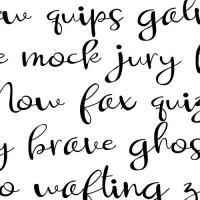 w quips gal
e mock jury
Now fax quiz
y brave ghos
o wafting z